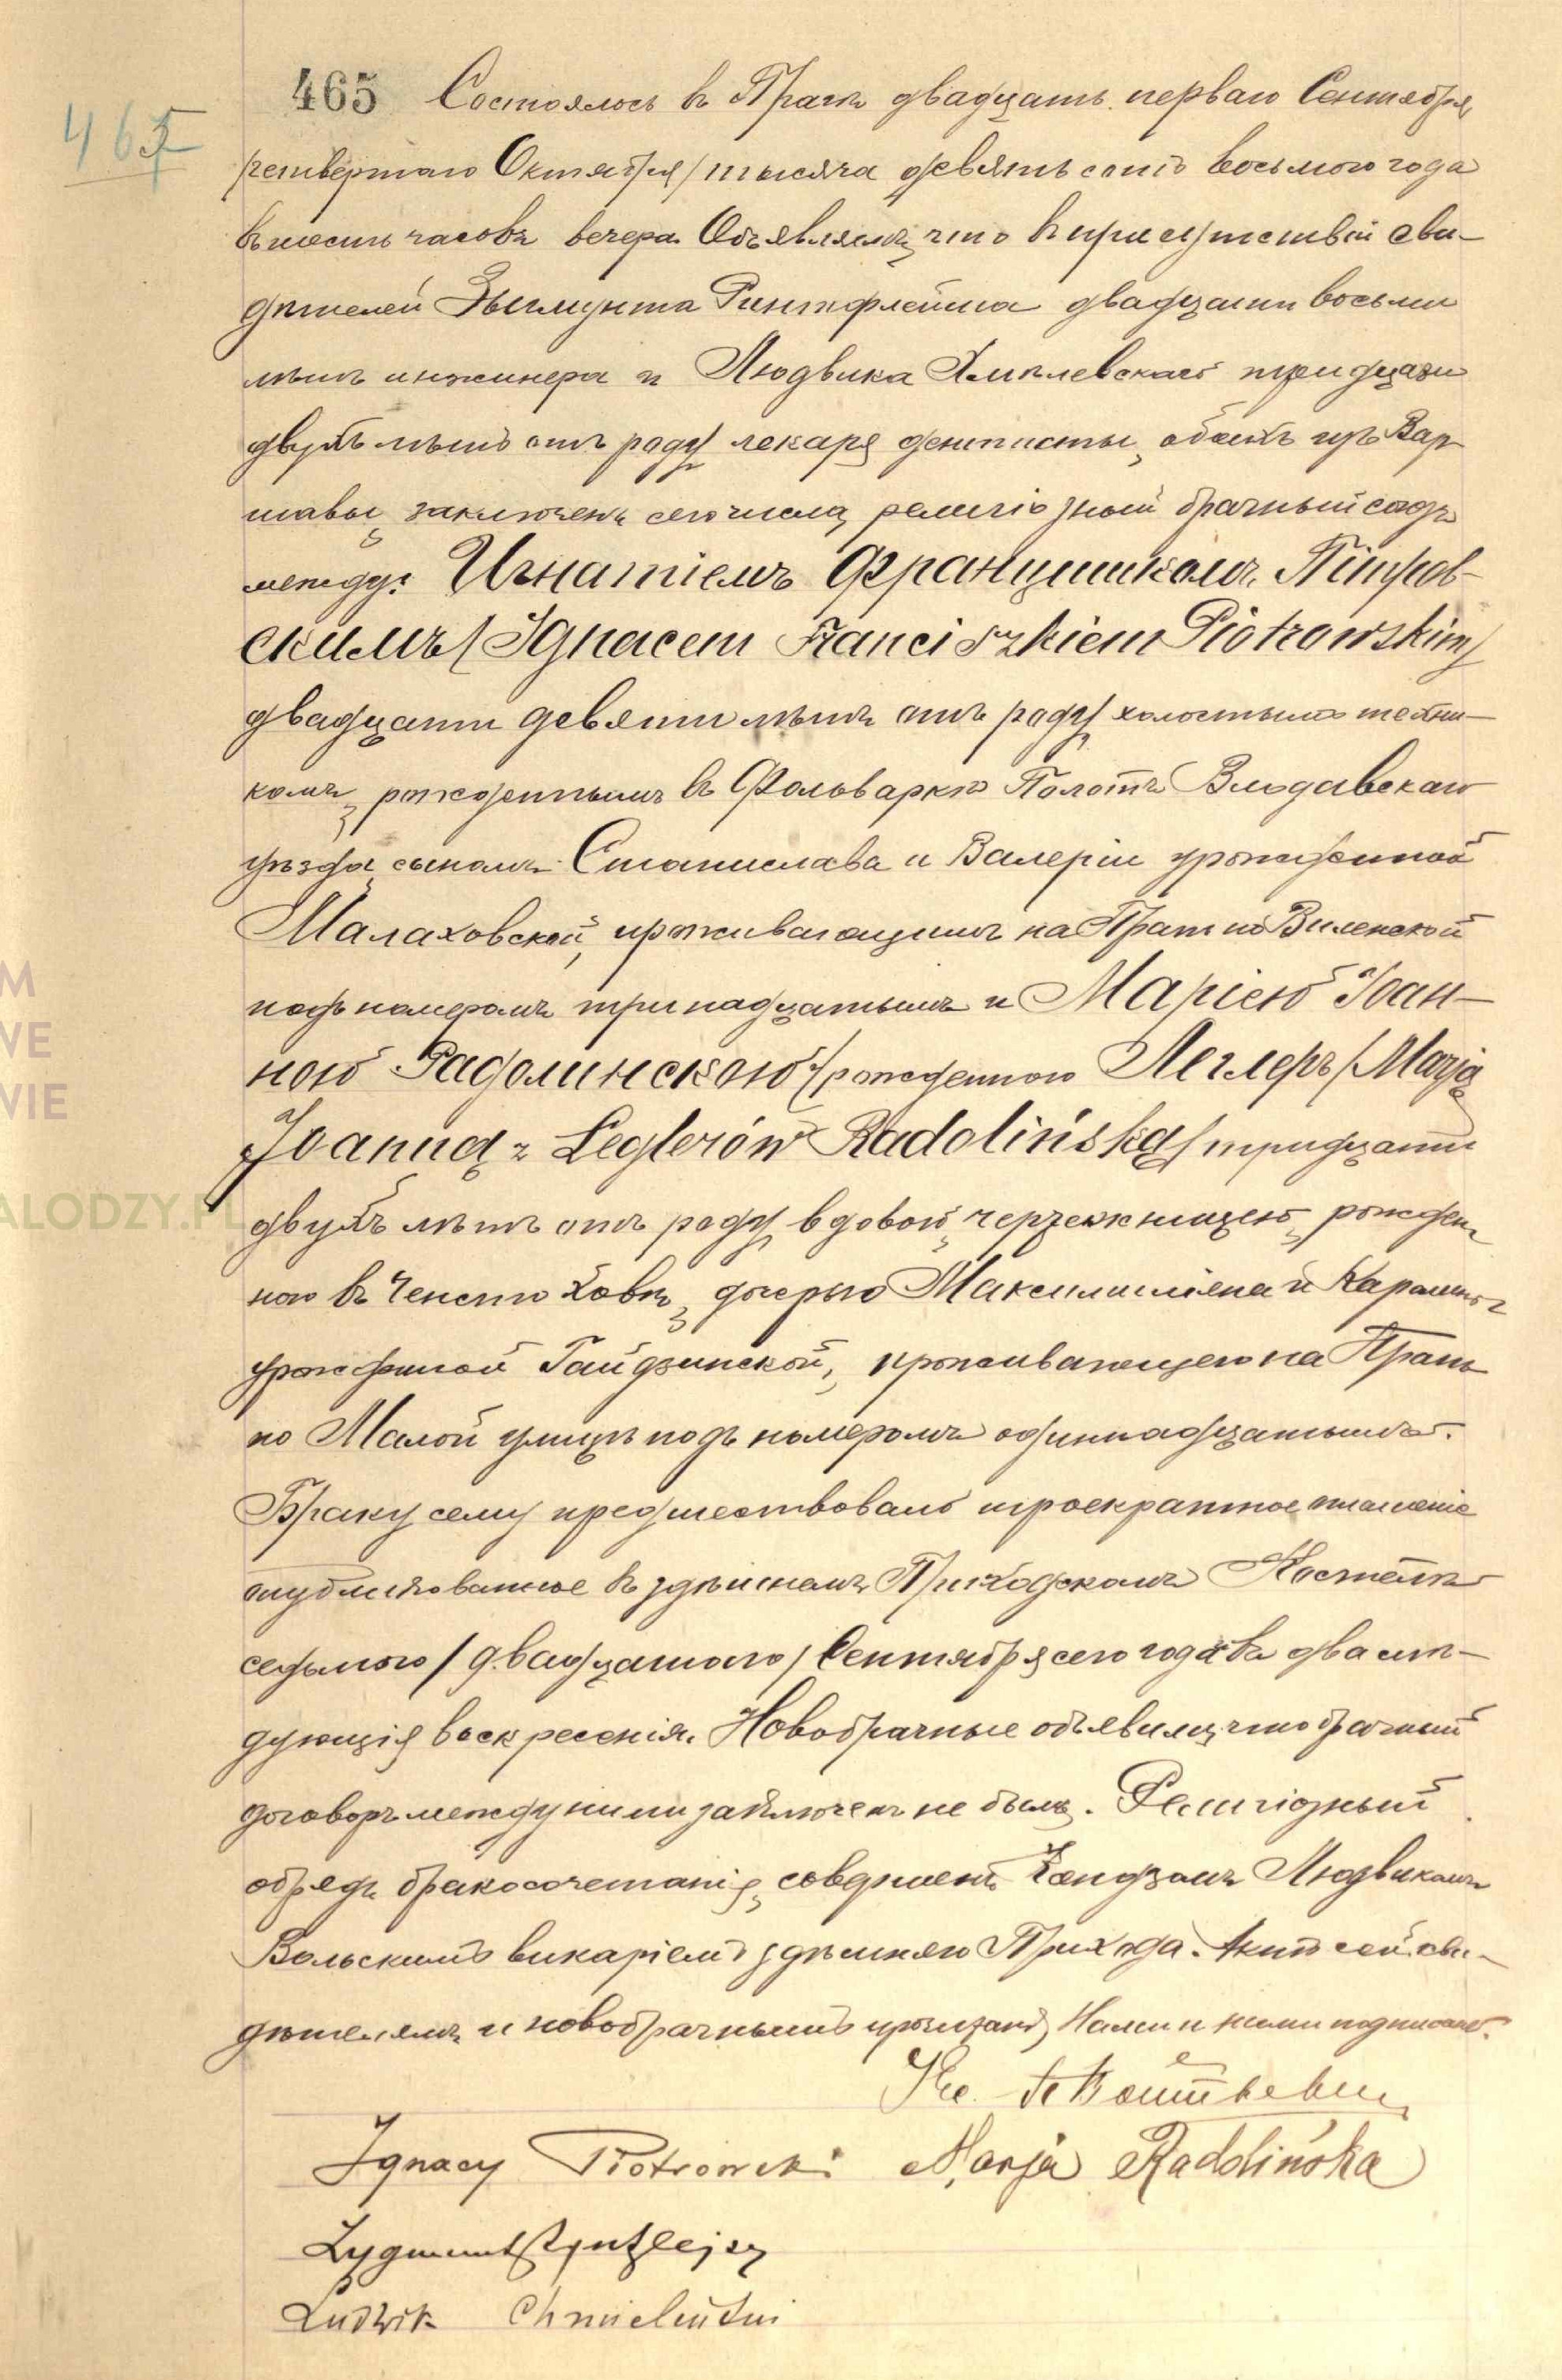 465 Состоялось въ Прагѣ двадцать перваго Сентября
465
/четвертаго Октября/ тысяча девятьсотъ восьмого года
въ шесть часовъ вечера. Объявляемъ, что въ присутствіи сви-
дѣтелей Зыгмунта Ринтфлейша двадцати восьми
лѣтъ инженера и Людвика Хмѣлевскаго тридцати
двухъ лѣтъ отъ роду лекаря дентисты, обоихъ изъ Вар-
шавы, заключенъ сего числа, религіозный брачный союзъ
между: Игнатіемъ Францишкомъ Піотров-
скимъ /Ignacem Franciszkiem Piotrowskim/
двадцати девяти лѣтъ отъ роду, холостымъ техни-
комъ, рожденнымъ въ Фольваркѣ Влодавскаго
уѣзда, сыномъ Станислава и Валеріи урожденной
Малаховской, проживающимъ на Прагѣ по Виленской
подъ номеромъ тринадцатымъ и Маріею Іоан-
ною Радолинскою урожденною Леглеръ /Marją
Joanną z Leglerów Radolińską/ тридцати
двухъ лѣтъ отъ роду, вдовой, чертежницею, рожден-
ною въ Ченстоховѣ, дочерью Максимиліяна и Каролины
урожденной Гайдзинской, проживающею на Прагѣ
по Малой улицѣ подъ номеромъ одиннадцатымъ.
Браку сему предшествовало троекратное оглашеніе
опубликованное въ здѣшнемъ Приходскомъ Костелѣ
седьмого /двадцатого/ Сентября сего года и въ два слѣ-
дующія воскресенія. Новобрачные объявили, что брачный
договоръ между ними заключенъ не былъ. Религіозный
обрядъ бракосочетанія, совершенъ Ксендзомъ Людвикомъ
Вольскимъ викаріемъ здѣшняго Прихода. Актъ сей сви-
дѣтелямъ и новобрачнымъ прочитанъ, Нами и ними подписанъ.
Кс.
Ignacy Piotrowski Marja Radolińska
Zygmunt Ryntflejsz
Ludwik Chmielewski